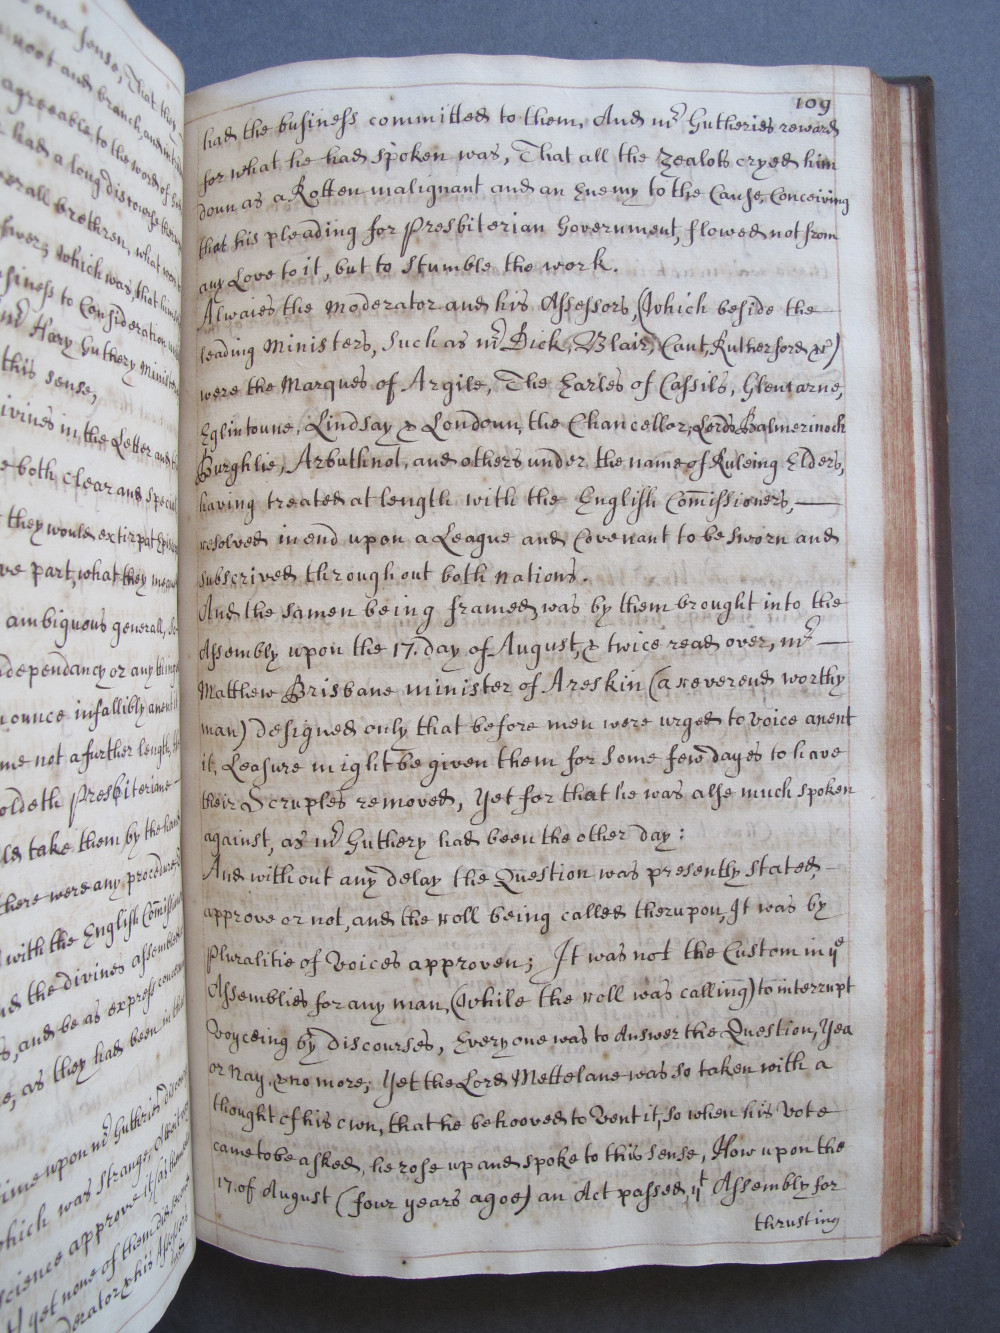 one sense, That they
root and branch, and
agreeable to the word of
had a long discourse
brethren, what
which was, that
to Consideration
Mr Hary Guthery Minister
this sense,
divines in the Letter and
both clear and
they would extirpat
part, what they
ambiguous generall,
Independancy or any
infallibly anent
me not a further length,
holdeth Presbiteriane
take them by the hand
there were any procedure
with the English
and the divines assembled
and be as express
as they had been in
upon Mr Gutheries
which was strange,
approve it
yet none of them
his Assessors
had
109
had the business committed to them, And Mr Gutheries reward
for what he had spoken was, That all the Zealots cryed him
doun as a Rotten malignant and an Enemy to the Cause, Conceiving
that his pleading for Presbiterian Government, flowed not from
any Love to it, but to stumble the work.
Alwaies the Moderator and his Assessors, (which beside the
leading Ministers, such as Mr Dick, Blair, Cant, Rutherford &c)
were the Marques of Argile, The Earles of Cassils, Glencarne,
Eglintoune, Lindsay & Loudoun, the Chancellor, Lords Balmerinoch
Burghlie, Arbuthnot, and others under the name of Ruleing Elders,
having treated at length with the English Comissioners,
resolved in end upon a League and Covenant to be sworn and
subscrived through out both nations.
And the samen being framed, was by them brought into the
Assembly upon the 17. day of August, & twice read over, Mr
Matthew Brisbane minister of Areskin (a reverend worthy
man) designed only that before men were urged to voice anent
it, Leasure might be given them for some few dayes to have
their Scruples removed, yet for that he was alse much spoken
against, as Mr Guthery had been the other day:
And without any delay the Question was presently stated,
approve or not, and the roll being called therupon, It was by
Pluralitie of Voices approven; It was not the Custom in ye
Assemblies for any man, (while the roll was calling) to interrupt
Voyceing by discourses, Every one was to Answer the Question, Yea
or Nay, & no more; Yet the Lord Mettelane was so taken with a
thought of his own, that he behooved to Vent it, so when his Vote
came to be asked, he rose up and spoke to this sense, How upon the
17. of August (four years agoe) an Act passed, yt Assembly for
thrusting